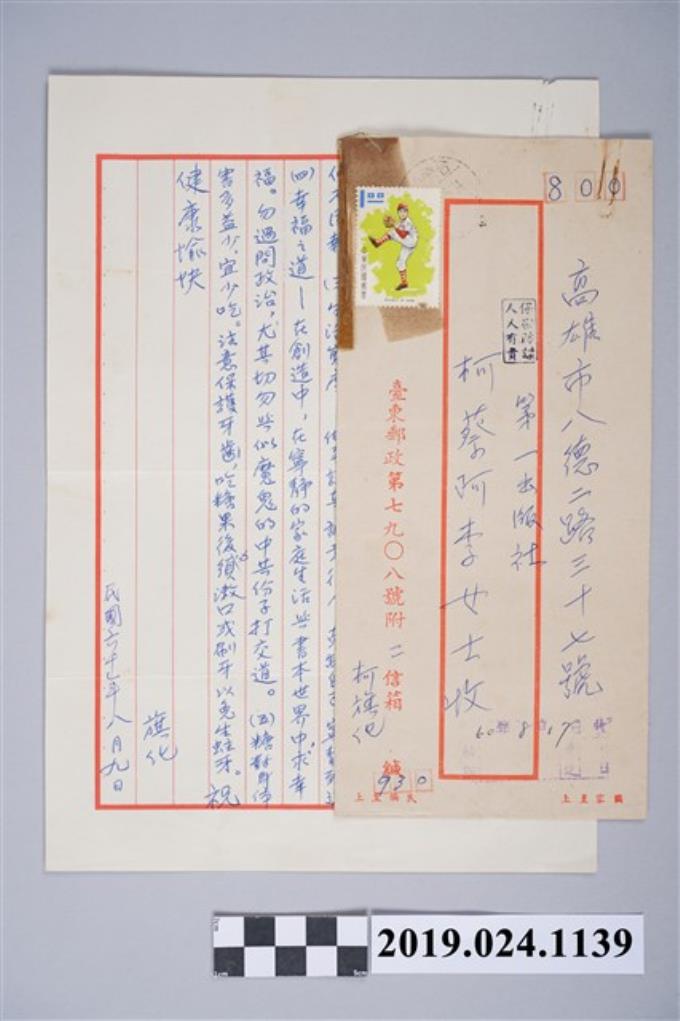 800
高雄市八德二路三十七號
第一出版社
柯蔡阿李女士收
保密防諜
人人有責
臺東郵政第七九〇八號附二信箱
柯旗化
緘
930
國家至上
民族至上
(四)幸福之道——在創造中，在寧靜的家庭生活與書本世界中求幸
福。勿過問政治，尤其切勿與似魔鬼的中共份子打交道。(五)糖對身体
害多益少，宜少吃。注意保護牙齒，吃糖果後須漱口或刷牙以免生蛀牙。祝
健康愉快
旗化
民國六十七年八月九日
2019.024.1139